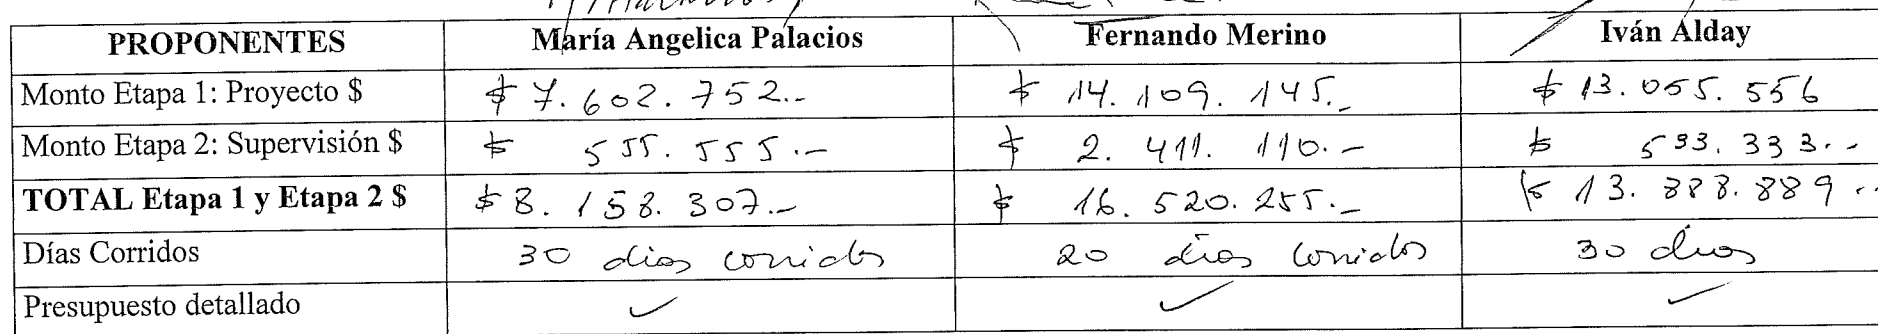 PROPONENTES María Angelica Palacios Fernando Merino Iván Alday
Monto Etapa 1: Proyecto $ $ 7.602.752.- $ 14.109.145.- $ 13.055.556
Monto Etapa 2: Supervisión $ $ 555.555.- $ 2.411.110.- $ 533.333.--
TOTAL Etapa 1 y Etapa 2 $ $ 8.158.307.- $ 16.520.255.- $ 13.888.889--
Días Corridos 30 dias corridos 20 dias corridos 30 dias
Presupuesto detallado ✓ ✓ ✓